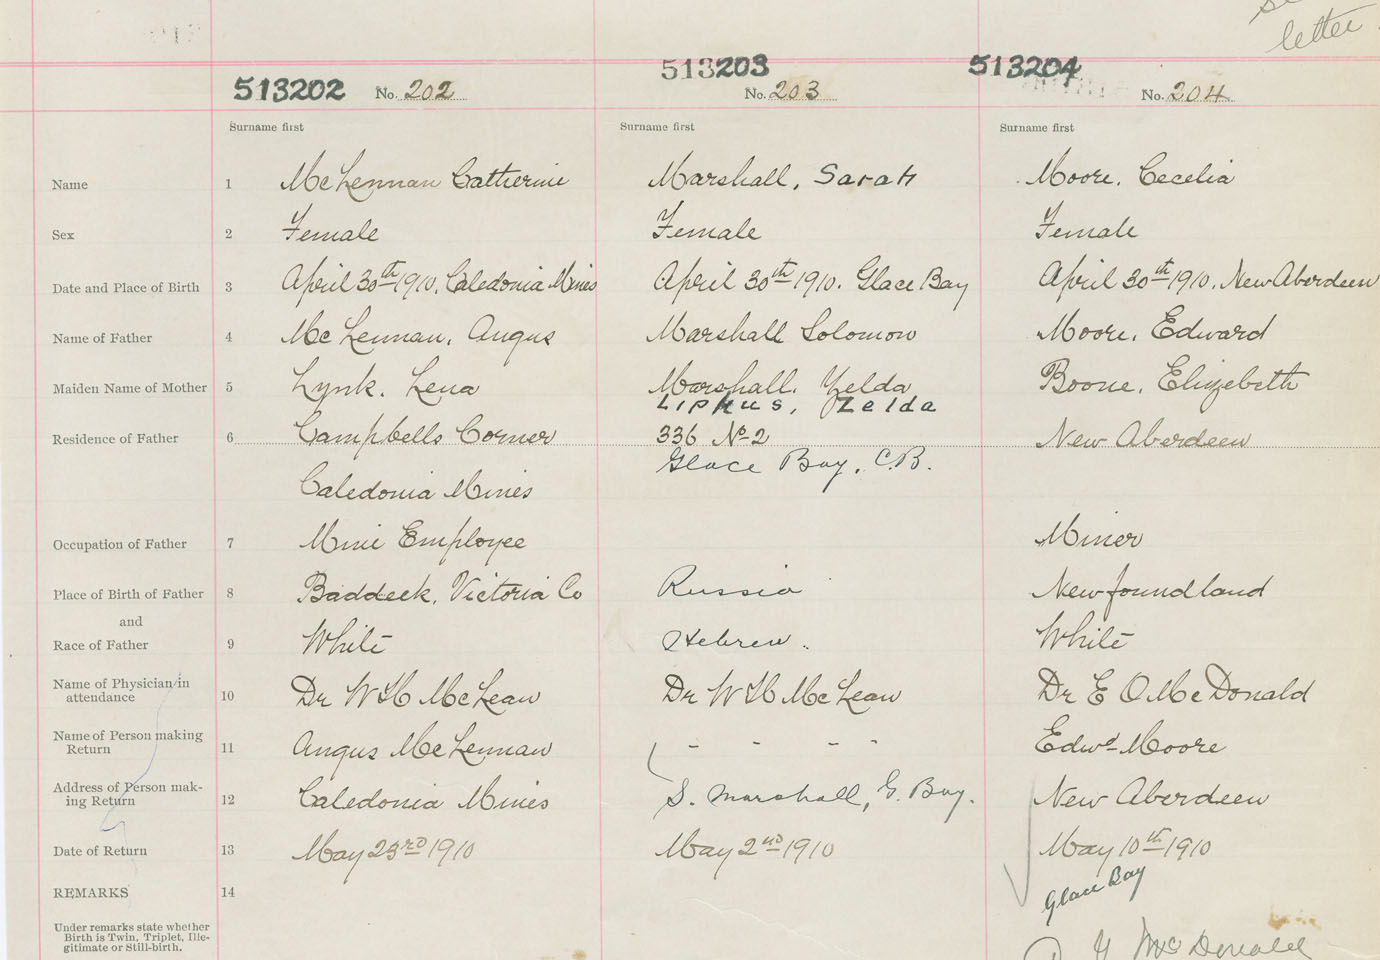 letter
513202 No. 202 513203 No. 203 513204 No. 204
Surname first Surname first Surname first
Name 1 McLennan Catherine Marshall, Sarah Moore, Cecelia
Sex 2 Female Female Female
Date and Place of Birth 3 April 30th 1910, Caledonia Mines April 30th 1910. Glace Bay April 30th 1910. New Aberdeen
Name of Father 4 McLennan, Angus Marshall Solomon Moore, Edward
Maiden Name of Mother 5 Lynk. Lena Marshall. Zelda Boone, Elizebeth
Lipkus, Zelda
Residence of Father 6 Campbells Corner 336 No-2 New Aberdeen
Glace Bay, C.B.
Caledonia Mines
Occupation of Father 7 Mine Employee Miner
Place of Birth of Father 8 Baddeck, Victoria Co Russia Newfoundland
and
Race of Father 9 White Hebrew. White
Name of Physician in
attendance 10 Dr W H McLean Dr W H McLean Dr E O McDonald
Name of Person making
Return 11 Angus McLennan - - - - Edwd Moore
Address of Person mak-
ing Return 12 Caledonia Mines S. Marshall, G. Bay. New Aberdeen
Date of Return 13 May 23rd 1910 May 2nd 1910 May 10th 1910
REMARKS 14 Glace Bay
Under remarks state whether
Birth is Twin, Triplet, Ille-
gitimate or Still-birth.
McDonald